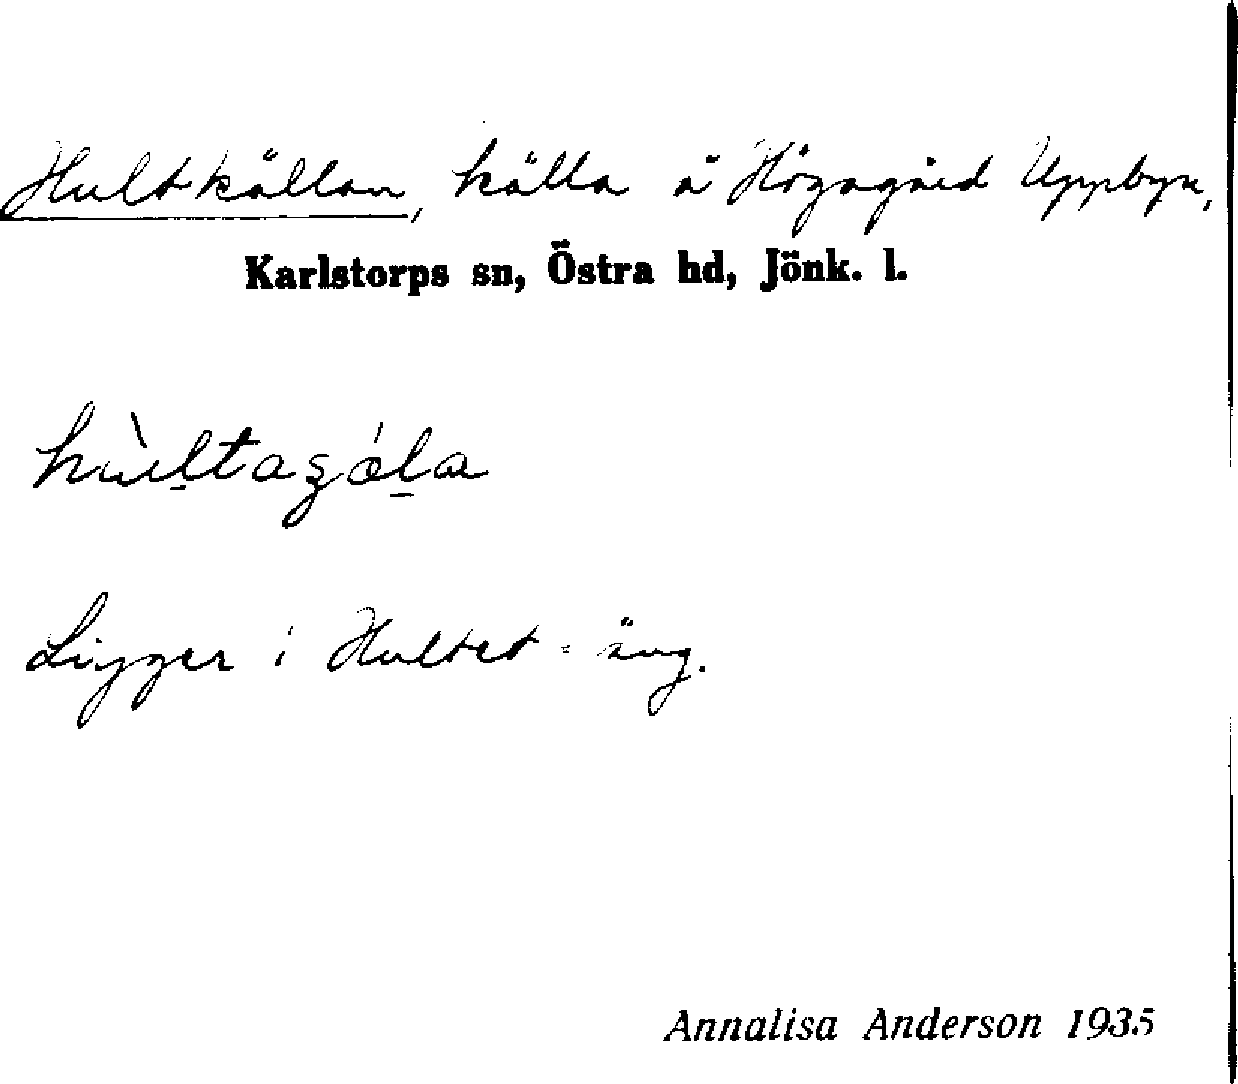 Hultkällan, källa å Högagärd Uppbyn,
Karlstorps sn, Östra hd, Jönk. l.
Ligger i Hultet = äng.
Annalisa Anderson 1935